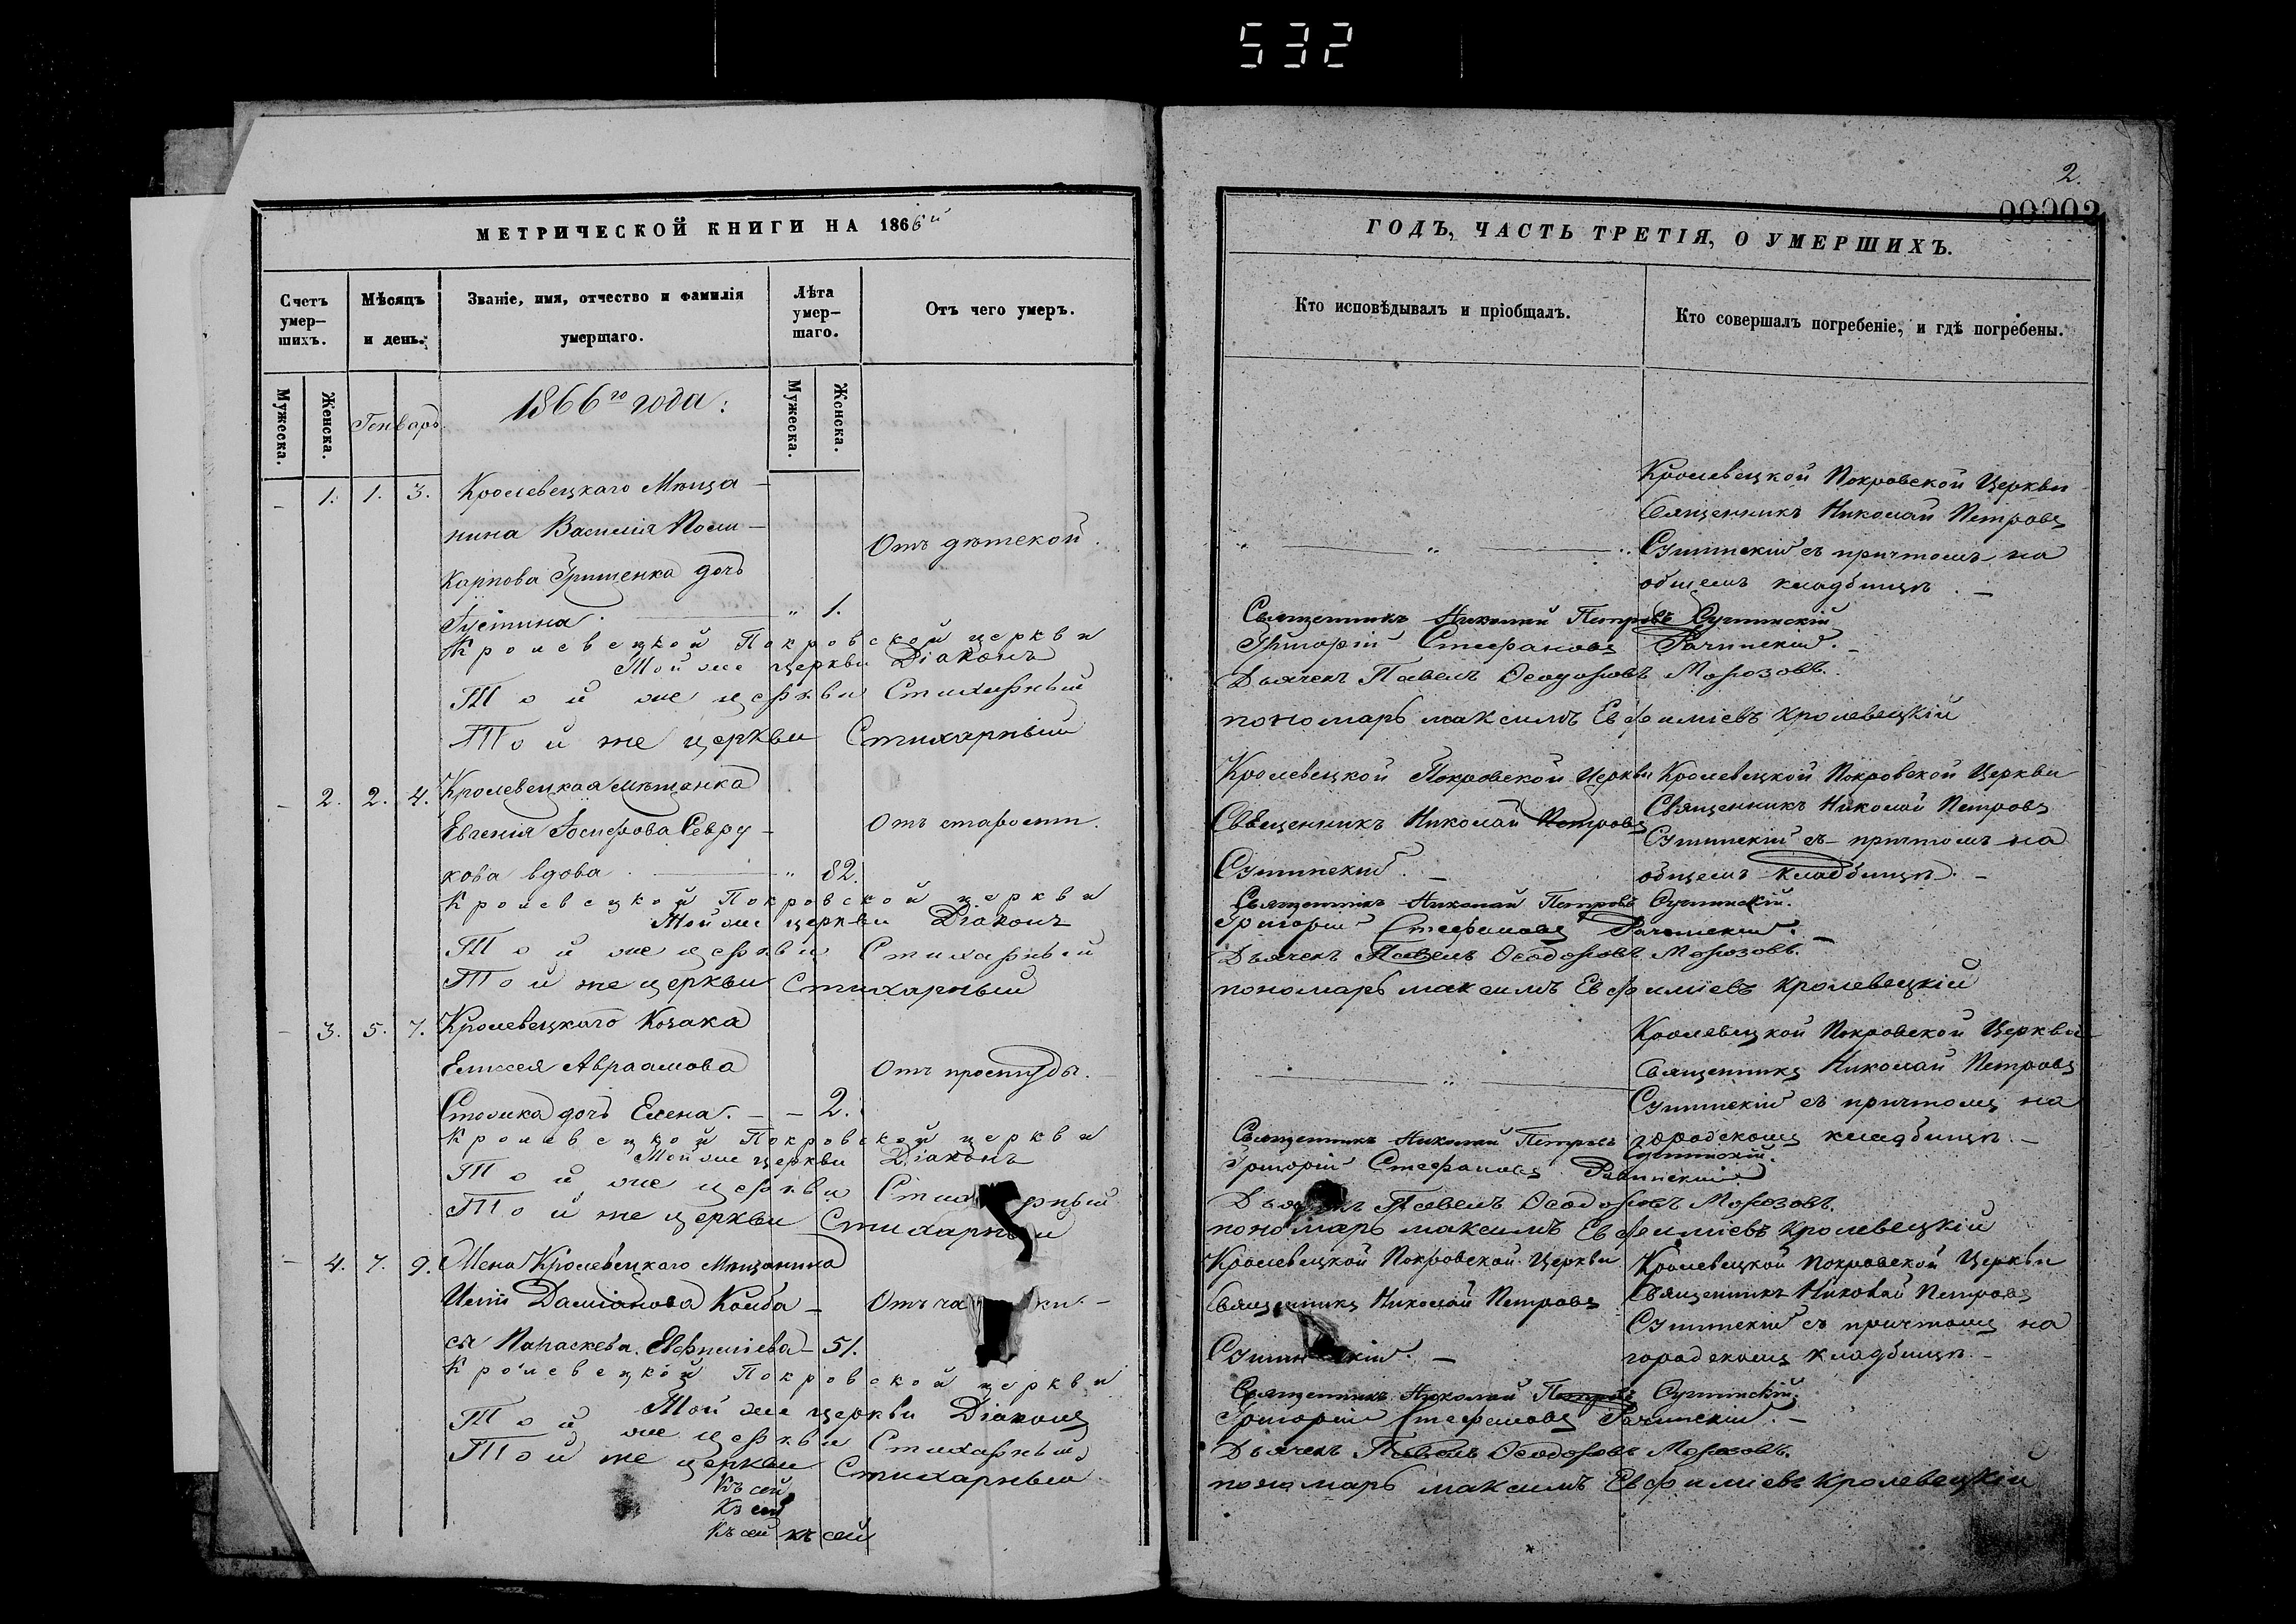 532
2.
00002
МЕТРИЧЕСКОЙ КНИГИ НА 1866й
ГОДЪ, ЧАСТЬ ТРЕТІЯ, О УМЕРШИХЪ.
Счетъ умер–шихъ.
Мѣсяцъ и день.
Званіе, имя, отчество и фамилія умершаго.
Лѣта умер–шаго.
Отъ чего умеръ.
Кто исповѣдывалъ и пріобщалъ.
Кто совершалъ погребеніе, и гдѣ погребены.
Мужеска.
Женска.
Генварь
1866го года:
Мужеска.
Женска.
– 1. 1. 3. Кролевецкаго Мѣща–
нина Василія Поли–
карпова Гриценка дочь
Іустина. " 1.
Отъ дѣтской.
Кролевецкой Покровской Церкви
Священникъ Николай Петровъ
съ причтомъ на
общемъ кладбищѣ. –
Кролевецкой Покровской церкви Священникъ Николай Петровъ
Той же церкви Діаконъ Григорій Стефановъ
Той же церкви Стихарный Дьячекъ Павелъ Ѳеодоровъ Морозовъ.
Той же церкви Стихарный пономарь максимъ Евфиміевъ Кролевецкій
– 2. 2. 4. Кролевецкая мѣщанка
Евгенія Іосифова Севрю–
кова вдова " 82.
Отъ старости.
Кролевецкой Покровской Церкви
Священникъ Николай Петровъ
Кролевецкой Покровской Церкви
Священникъ Николай Петровъ
съ причтомъ на
общемъ кладбищѣ. –
Кролевецкой Покровской церкви Священникъ Николай Петровъ
Той же церкви Діаконъ Григорій Стефановъ
Той же церкви Стихарный Дьячекъ Павелъ Ѳеодоровъ Морозовъ.
Той же церкви Стихарный пономарь максимъ Евфиміевъ Кролевецкій
– 3. 5. 7. Кролевецкаго Козака
Елисея Авраамова
Столика дочь Елена. – – 2.
Отъ простуды.
Кролевецкой Покровской Церкви
Священникъ Николай Петровъ
съ причтомъ на
городскомъ кладбищѣ. –
Кролевецкой Покровской церкви Священникъ Николай Петровъ
Той же церкви Діаконъ Григорій Стефановъ
Той же церкви Павелъ Ѳеодоровъ Морозовъ.
Той же церкви Стихарный пономарь максимъ Евфиміевъ Кролевецкій
– 4. 7. 9. Жена Кролевецкаго Мѣщанина
Даміанова
Параскева Евфиміева – 51.
Кролевецкой Покровской Церкви
Священникъ Николай Петровъ
Кролевецкой Покровской Церкви
Священникъ Николай Петровъ
съ причтомъ на
городскомъ кладбищѣ. –
Кролевецкой Покровской церкви Священникъ Николай Петровъ
Той же церкви Діаконъ Григорій Стефановъ
Той же церкви Стихарный Дьячекъ Павелъ Ѳеодоровъ Морозовъ.
Той же церкви Стихарный пономарь максимъ Евфиміевъ Кролевецкій
Къ сей
Къ сей
Къ сей къ сей